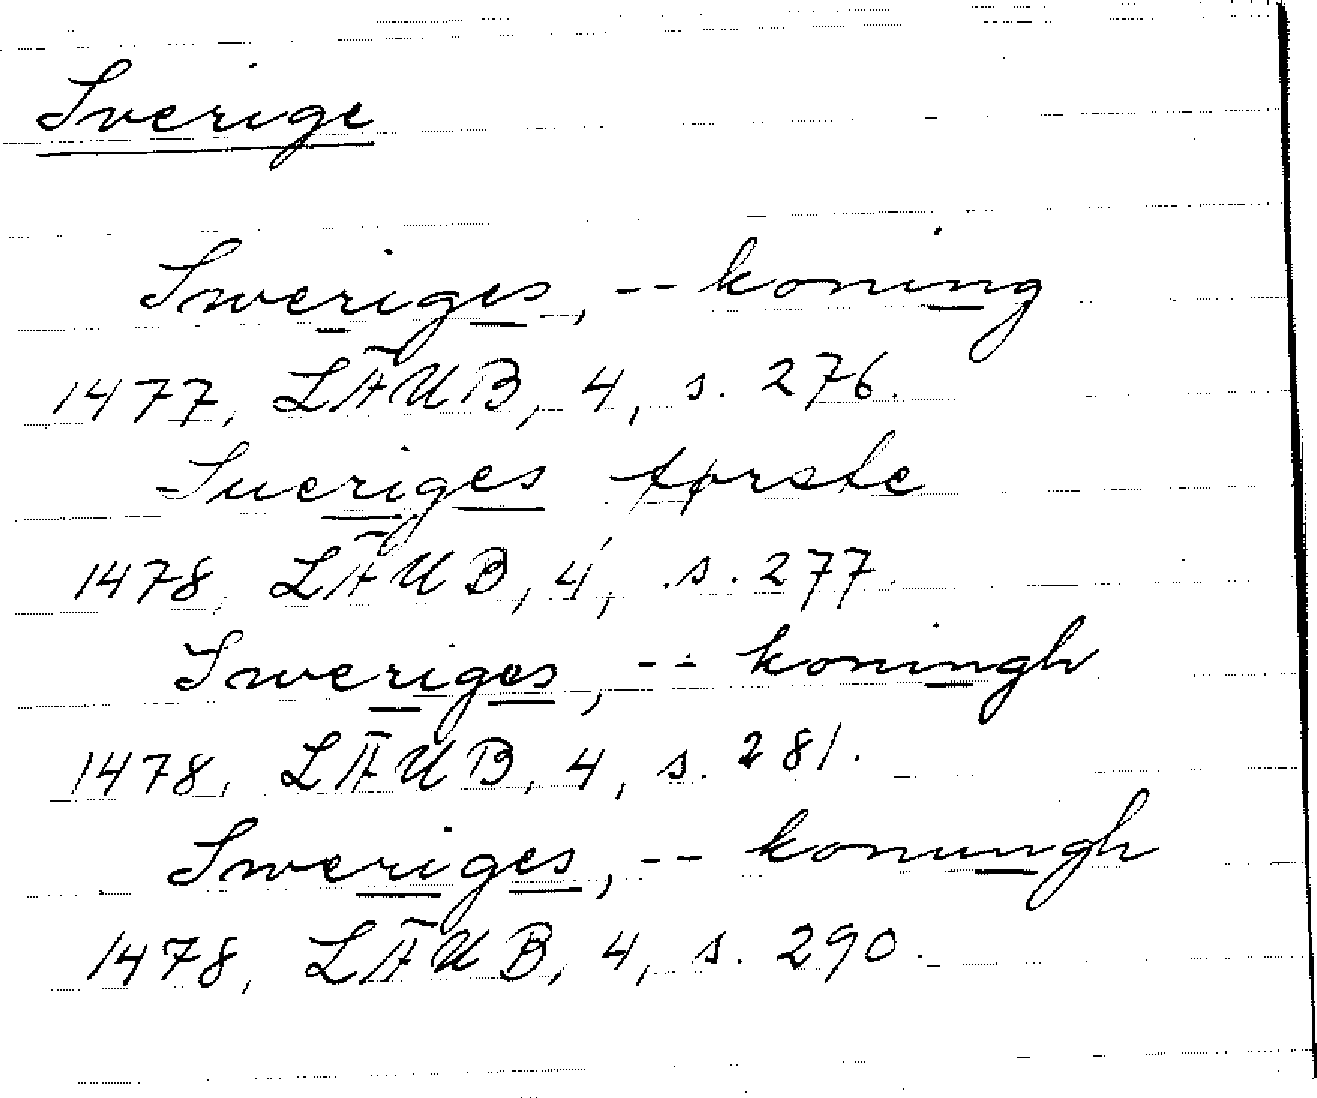 Sverige
Sweriges, -- koning
1477, LÄUB, 4, s. 276.
Sueriges første
1478, LÄUB, 4, s. 277.
Sweriges, -- koningh
1478, LÄUB, 4, s. 281.
Sweriges, -- konungh
1478, LÄUB, 4, s. 290.